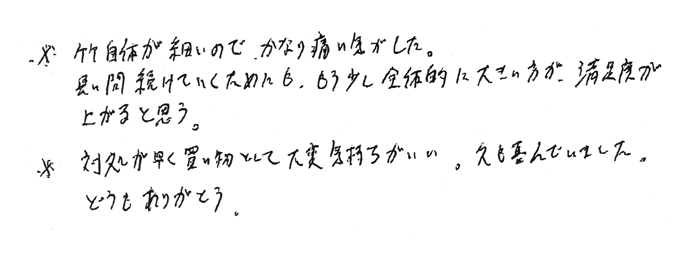 ※ 竹自体が細いので、かなり痛い気がした。
長い間続けていくためにも、もう少し全体的に大きい方が、満足度が
上がると思う。
※ 対処が早く買い物として大変気持ちがいい。父も喜んでいました。
どうもありがとう。